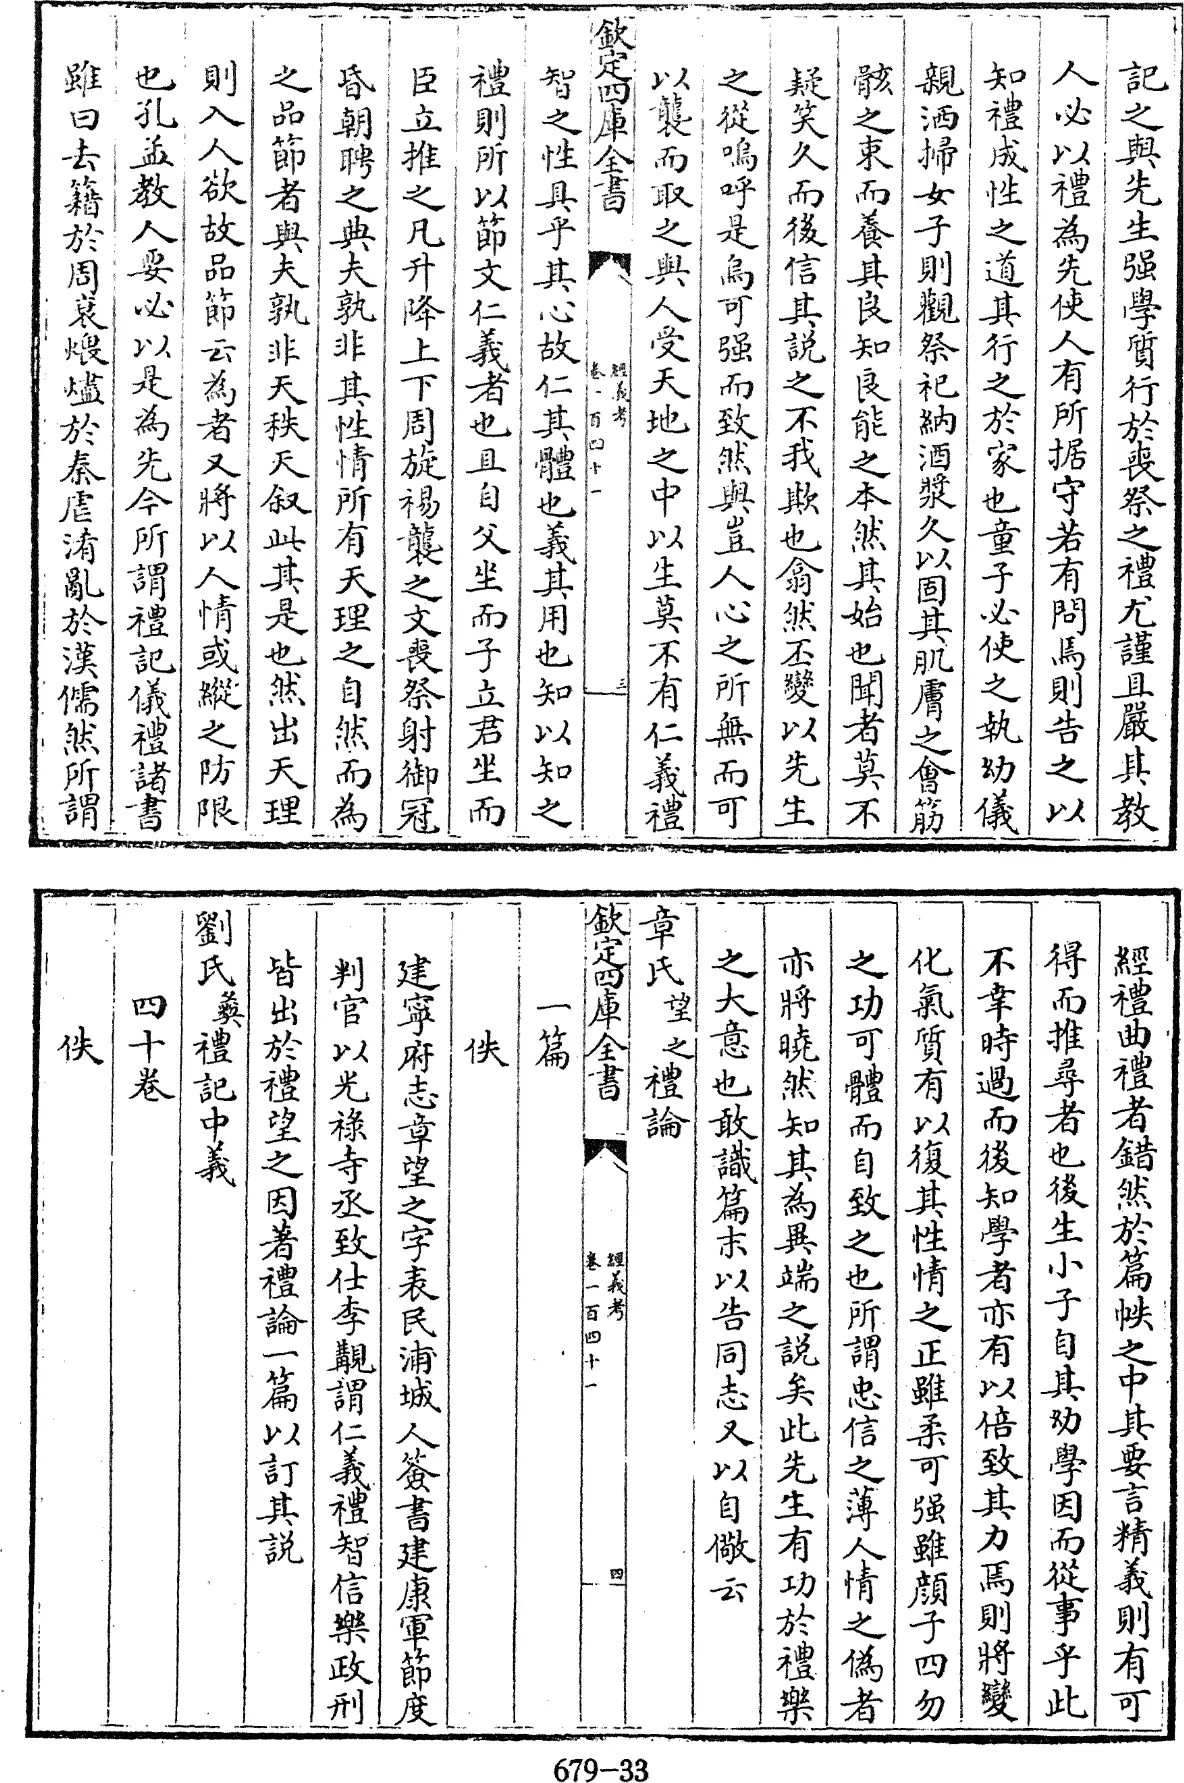 記之與先生强學質行於喪祭之禮尤謹且嚴其教
人必以禮為先使人有所据守若有問焉則告之以
知禮成性之道其行之於家也童子必使之執幼儀
親洒掃女子則觀祭祀納酒漿久以固其肌膚之會筋
骸之束而養其良知良能之本然其始也聞者莫不
疑笑久而後信其說之不我欺也翕然丕變以先生
之從嗚呼是烏可强而致然與豈人心之所無而可
以襲而取之與人受天地之中以生莫不有仁義禮
欽定四庫全書
經義考
卷一百四十一
三
智之性具乎其心故仁其體也義其用也知以知之
禮則所以節文仁義者也且自父坐而子立君坐而
臣立推之凡升降上下周旋裼襲之文喪祭射御冠
昏朝聘之典夫孰非其性情所有天理之自然而為
之品節者與夫孰非天秩天叙此其是也然出天理
則入人欲故品節云為者又將以人情或縱之防限
也孔孟教人要必以是為先今所謂禮記儀禮諸書
雖曰去籍於周衰煨燼於秦虐淆亂於漢儒然所謂
經禮曲禮者錯然於篇帙之中其要言精義則有可
得而推尋者也後生小子自其幼學因而從事乎此
不幸時過而後知學者亦有以倍致其力焉則將變
化氣質有以復其性情之正雖柔可强雖顔子四勿
之功可體而自致之也所謂忠信之薄人情之偽者
亦將曉然知其為異端之說矣此先生有功於禮樂
之大意也敢識篇末以告同志又以自儆云
章氏望之禮論
欽定四庫全書
經義考
卷一百四十一
四
一篇
佚
建寧府志章望之字表民浦城人簽書建康軍節度
判官以光祿寺丞致仕李覯謂仁義禮智信樂政刑
皆出於禮望之因著禮論一篇以訂其説
劉氏彝禮記中義
四十卷
佚
679-33